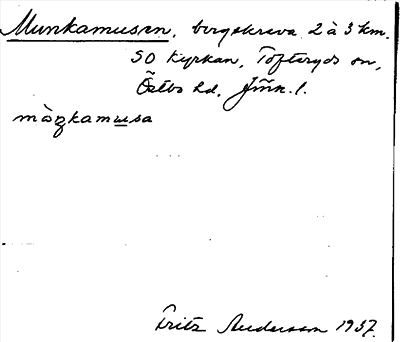 Munkamusen, bergskreva 2 à 3 km.
SO kyrkan, Tofteryds sn,
Östbo hd, Jönk. l.
màŋkamusa
Fritz Andersson 1937.